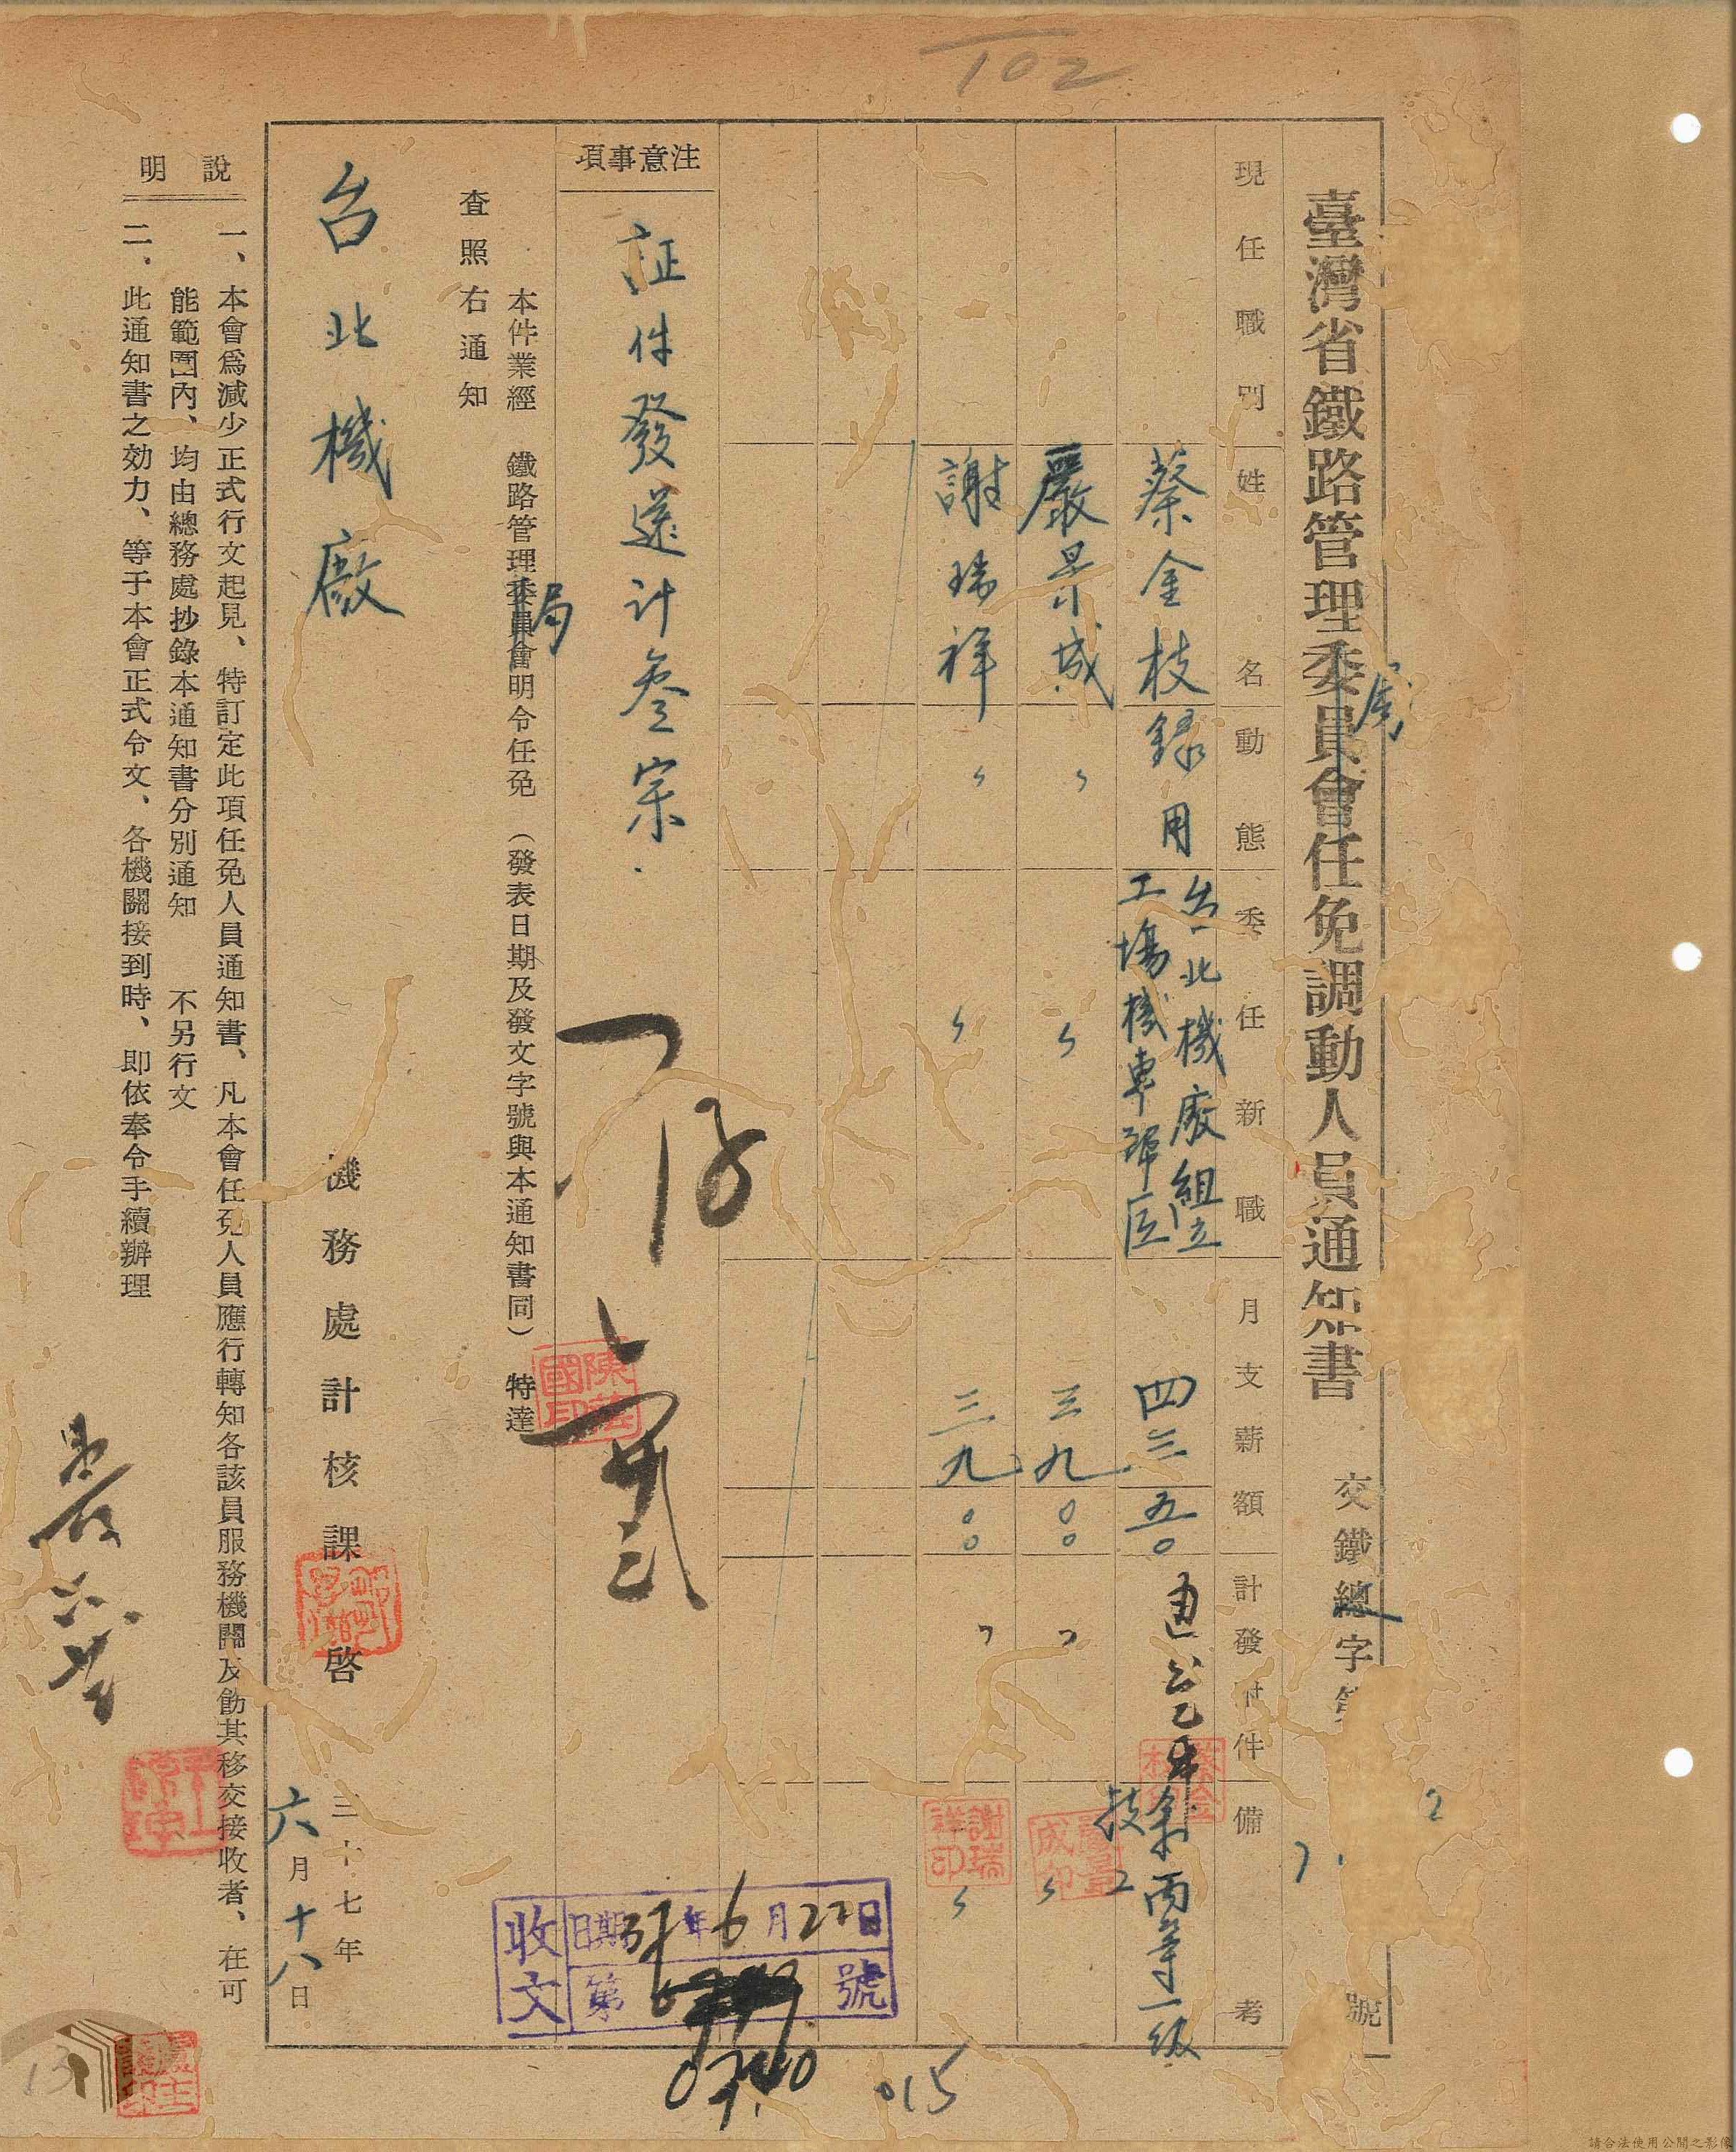 102
臺灣省鐵路管理委員會任免調動人員通知書
局
交鐵總字第
號
現任職別
姓名
動態
委任新職
月支薪額
計發附件
備考
蔡金枝
錄用
台北機廠組立
工場機車
匠
四三五〇
丙等一級
技
嚴景成
〃
〃
三九〇〇
〃
〃
謝瑞祥
〃
〃
三九〇〇
〃
〃
謝瑞祥印
注意事項
証件發還計叁宗.
本件業經 鐵路管理委員會明令任免 (發表日期及發文字號與本通知書同) 特達
局
查照右通知
台北機廠
機務處計核課啓
三十七年
六月十八日
收文
日期37年6月22日
第
號
0740
015
說明
一、本會爲減少正式行文起見、特訂定此項任免人員通知書、凡本會任免人員應行轉知各該員服務機關及飭其移交接收者、在可
能範圍內、均由總務處抄錄本通知書分別通知 不另行文
二、此通知書之効力、等于本會正式令文、各機關接到時、即依奉令手續辦理
13
請合法使用公開之影像